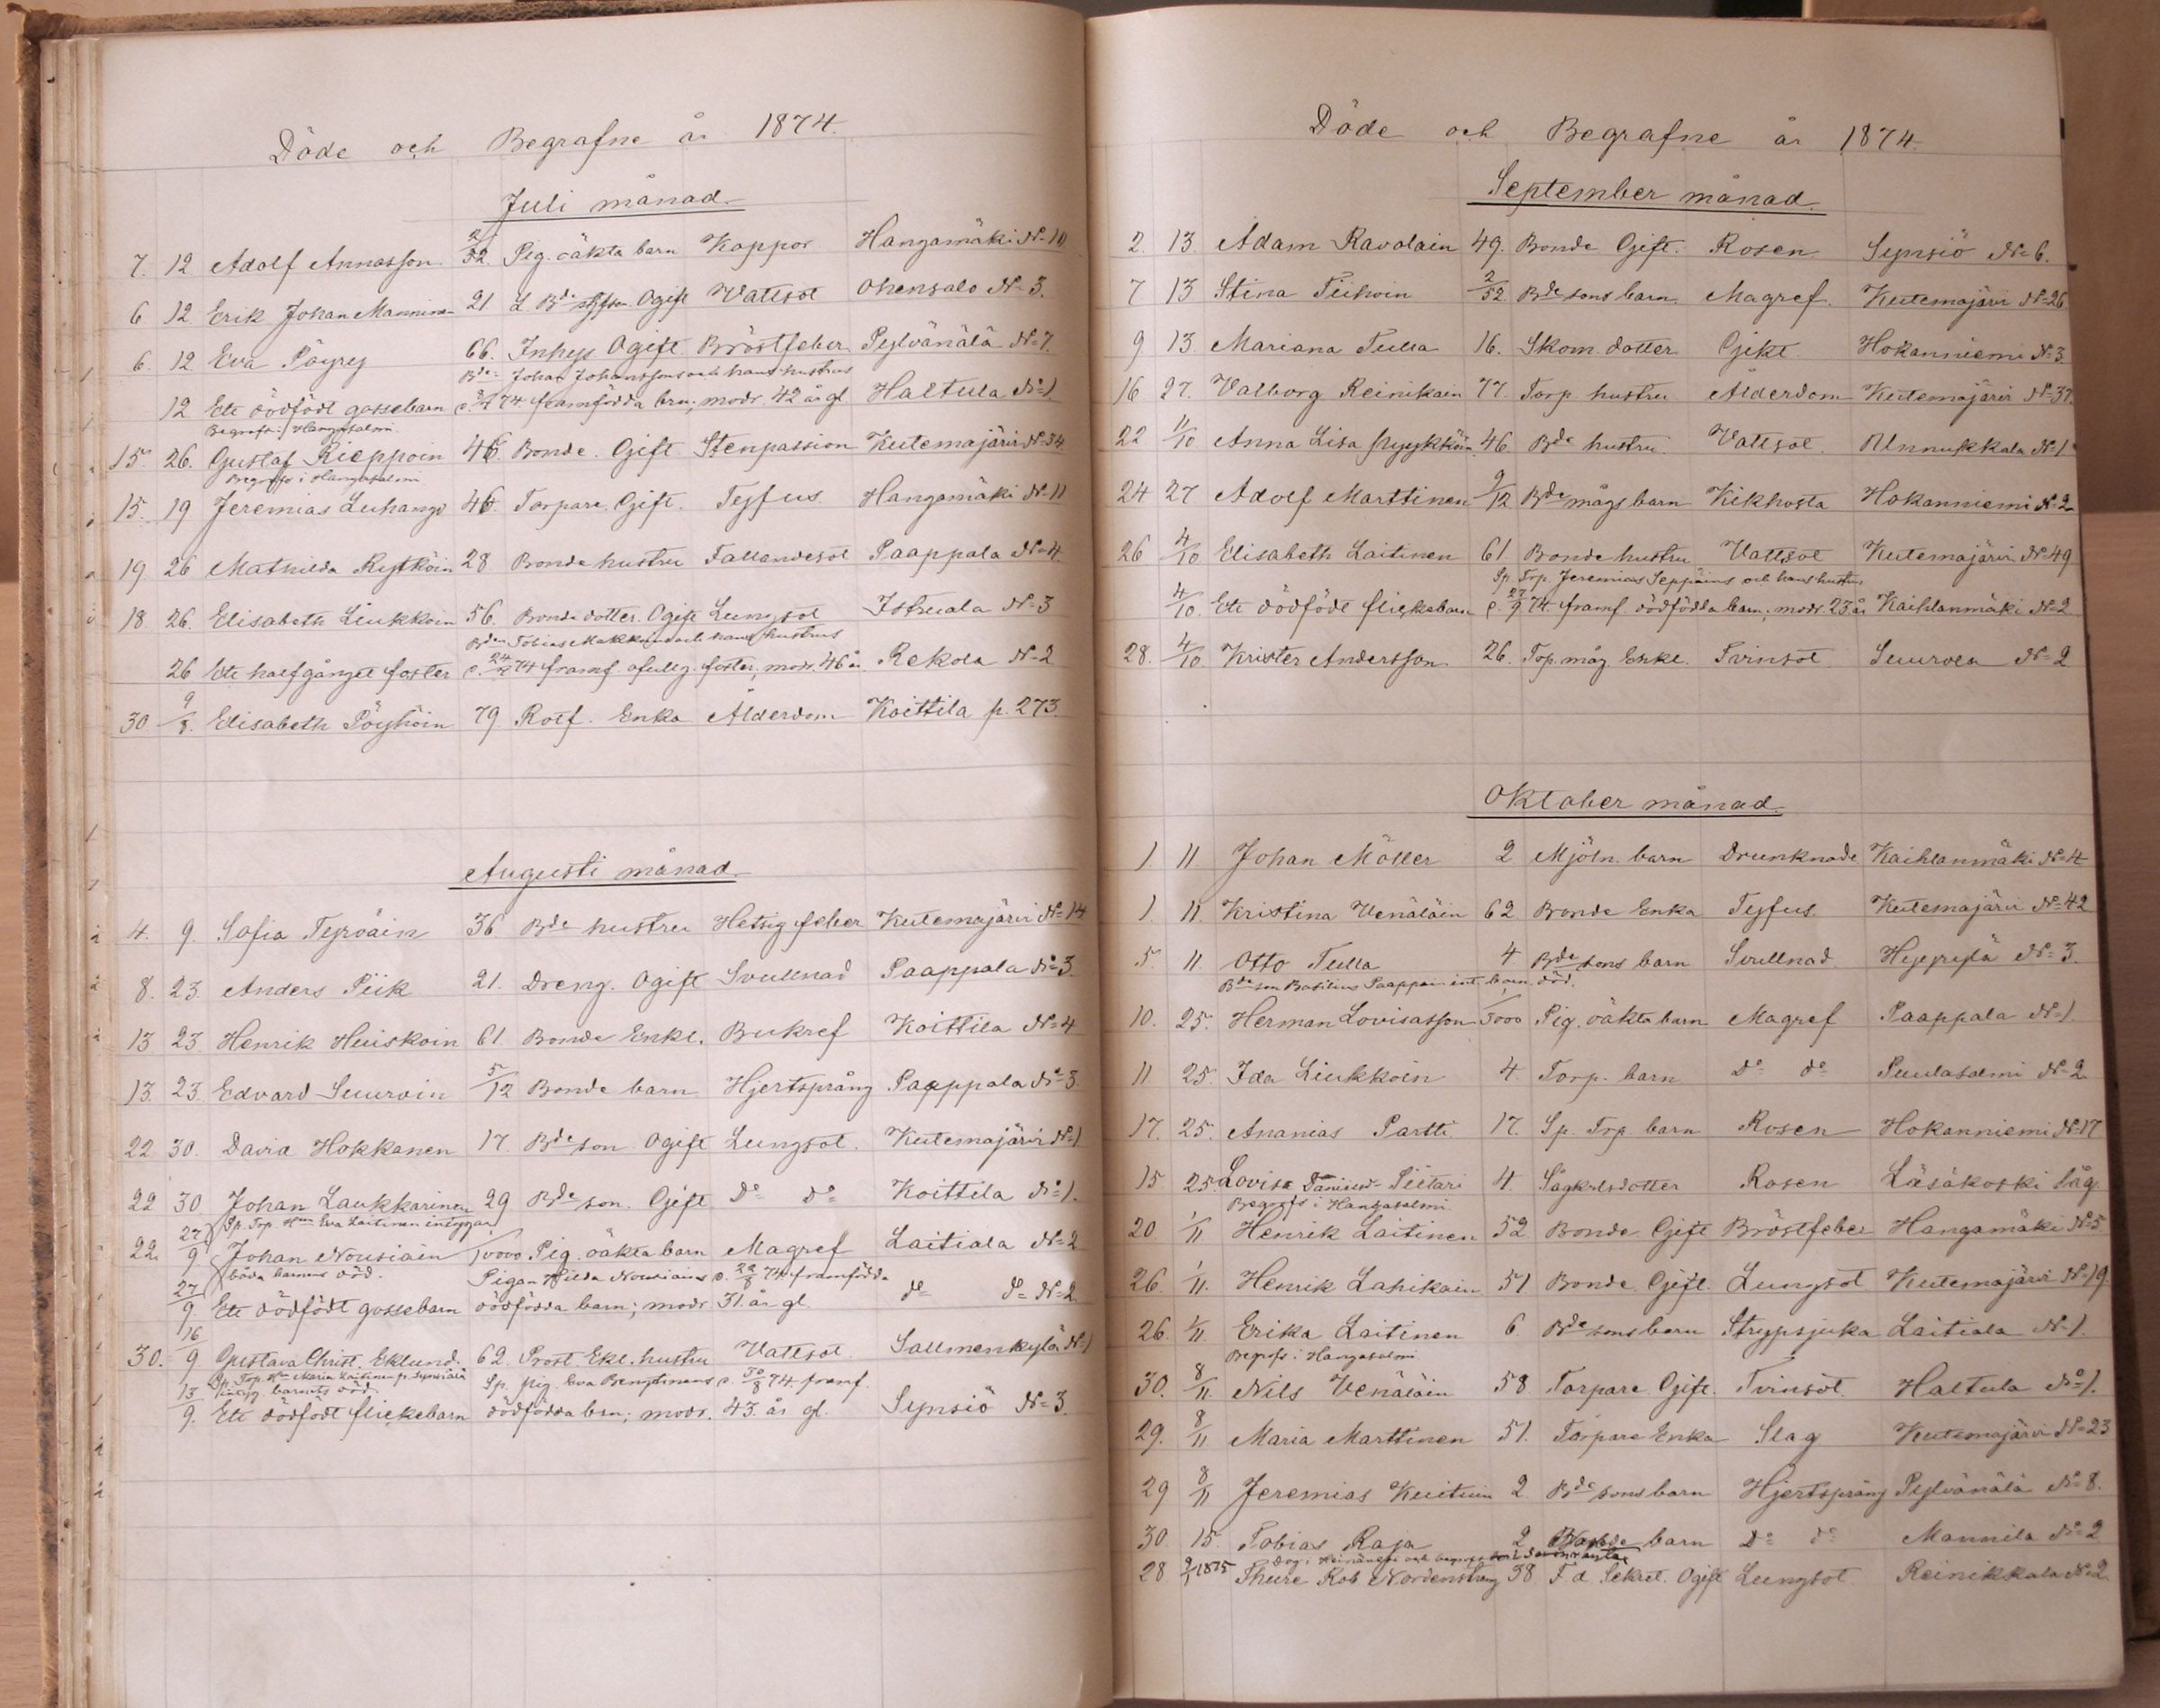 Döde och Begrafne år 1874.
Juli månad.
7. 12 Adolf Annasson. 2/52. Pig. oäkta barn Koppor Hangamäki No 10
6 12 Erik Johan Manninen 21 Ogift Vattsot Ohensalo No 3.
6. 12 Eva Pöyry 66. Inhys Ogift Bröstfeber Pylvänälä No 7.
Bde Johan Johanssons och hans hustrus
12 Ett dödfödt gossebarn 74 framfödda brn; modr. 42 år gl Haltula No 1
Begrafs i Hangasalmi.
15. 26. Gustaf Rieppoin 46. Bonde. Gift Stenpassion Kutemajärvi No 34.
Begrofs i Hangasalmi
15. 19 Jeremias Luhango 46. Torpare Gift. Tyfus Hangamäki No 11
19 26 Mathilda Rytköin 28 Bonde hustru Fallandesot Paappala No 4.
18. 26. Elisabeth Liukkoin 56. Bonde dotter. Ogift Lungsot Istruala No 3
Bden Tobias Makkonens och hans hustrus
26 Ett halfgånget foster 74 framf. ofullg. foster, modr. 46 år. Rekola No 2
30 9/8. Elisabeth Pöyhöin 79. Rotf. Enka Ålderdom Koittila p. 273.
Augusti månad.
4. 9. Sofia Tyrväin 36 Bde hustru Hetsig feber Kutemajärvi No 14
8. 23. Anders Piik 21. Dreng. Ogift Svullnad Paappala No 3.
13 23. Henrik Huiskoin 61. Bonde Enkl. Bukref Koittila No 4
13. 23. Edvard Suurvin 5/12 Bonde barn Hjertsprång Paappala No 3.
22 30. David Hokkanen 17. Bde son. Ogift Lungsot. Kutemajärvi No 1
22 30 Johan Laukkarinen 29 Bde son. Gift Do Do Koittila No 1.
Sp. Torp. Hun Eva Laitinen intygar
22. 27/9 Johan Nousiain Pig. oäkta barn Magref Laitiala No 2
båda barnens död. Pigan Hilda Nousiains d. 22/8 74 framfödda
27/9. Ett dödfödt gossebarn dödfödda barn; modr. 31. år gl. do do No 2
30. 16/9 Gustava Christ. Eklund. 62. Prost. Ekl. hustru Vattsot. Sallmenkylä No 1
Sp. Torp. Hun Maria Laitinen Sp. pig. Eva Bengtinens d. 30/8 74. framf.
intyg. barnets död.
13/9. Ett dödfödt flickebarn dödfödda brn; modr. 43. år gl. Synsiö No 3.
Döde och Begrafne år 1874.
September månad.
2. 13. Adam Ravolain 49. Bonde Gift. Rosen Synsiö No 6.
7 13 Stina Tiihoin 2/52 Bde sons barn Magref. Kutemajärvi No 26
9 13. Mariana Tulla 16. Skom. dotter Gikt Hokanniemi No 3.
16 27. Valborg Reinikain 77. Torp. hustru Ålderdom Kutemajärvi No 37.
22 11/10 Anna Lisa Pyykköin 46. Bde hustru. Vattsot. Unnukkala No 1
24 27 Adolf Marttinen 9/12 Bde mågs barn Kikhosta Hokanniemi No 2
26 4/10 Elisabeth Laitinen 61 Bonde hustru Vattsot Kutemajärvi No 49
Sp. Torp. Jeremias Seppäins och hans hustrus
4/10. Ett dödfödt flickebarn d. 27/9 74 framf. dödfödda barn, modr. 23 år Kaihlanmäki No 2
28. 4/10 Krister Andersson 26. Top. måg Enkl. Tvinsot Suurola No 2
Oktober månad.
1 11 Johan Möller 2 Mjöln. barn Drunknade Kaihlanmäki No 4
1. 11. Kristina Venäläin 62 Bonde Enka Tyfus. Kutemajärvi No 42
5. 11. Otto Tulla 4 Bde sons barn Svullnad Hyyrylä No 3.
Bde son Basilius Paappain int. barn. död.
10. 25. Herman Lovisasson Pig. oäkta barn Magref Paappala No 1.
11 25. Ida Liukkoin 4 Torp. barn Do do Puulasalmi No 2
17. 25. Ananias Partti 17. Sp. Torp barn Rosen Hokanniemi No 17
15 25. Lovisa Danisdr Pietari 4. Sågkrlsdotter Rosen Läsäkoski såg.
Begrofs i Hangasalmi.
20. 1/11 Henrik Laitinen 52 Bonde Gift Bröstfeber Hangamäki No 5
26. 1/11. Henrik Lahikain 51 Bonde Gift. Lungsot Kutemajärvi No 19.
26. 1/11. Erika Laitinen 6 Bde sons barn Strypsjuka Laitiala No 1.
Begrofs i Hangasalmi.
30. 8/11 Nils Venäläin 58 Torpare Gift. Tvinsot. Haltula No 1.
29. 8/11 Maria Marttinen 51. Torpare Enka Slag Kutemajärvi No 23
29 8/11 Jeremias Kuituin 2. Bde sons barn Hjertsprång Pylvänälä No 8.
30. 15. Tobias Raja 2 barn Do do Mannila No 2
Dog i och begrofs
28 2/1 1875 Thure Rob Nordenstreng 38 F d. Sekret. Ogift Lungsot Reinikkala No 2.